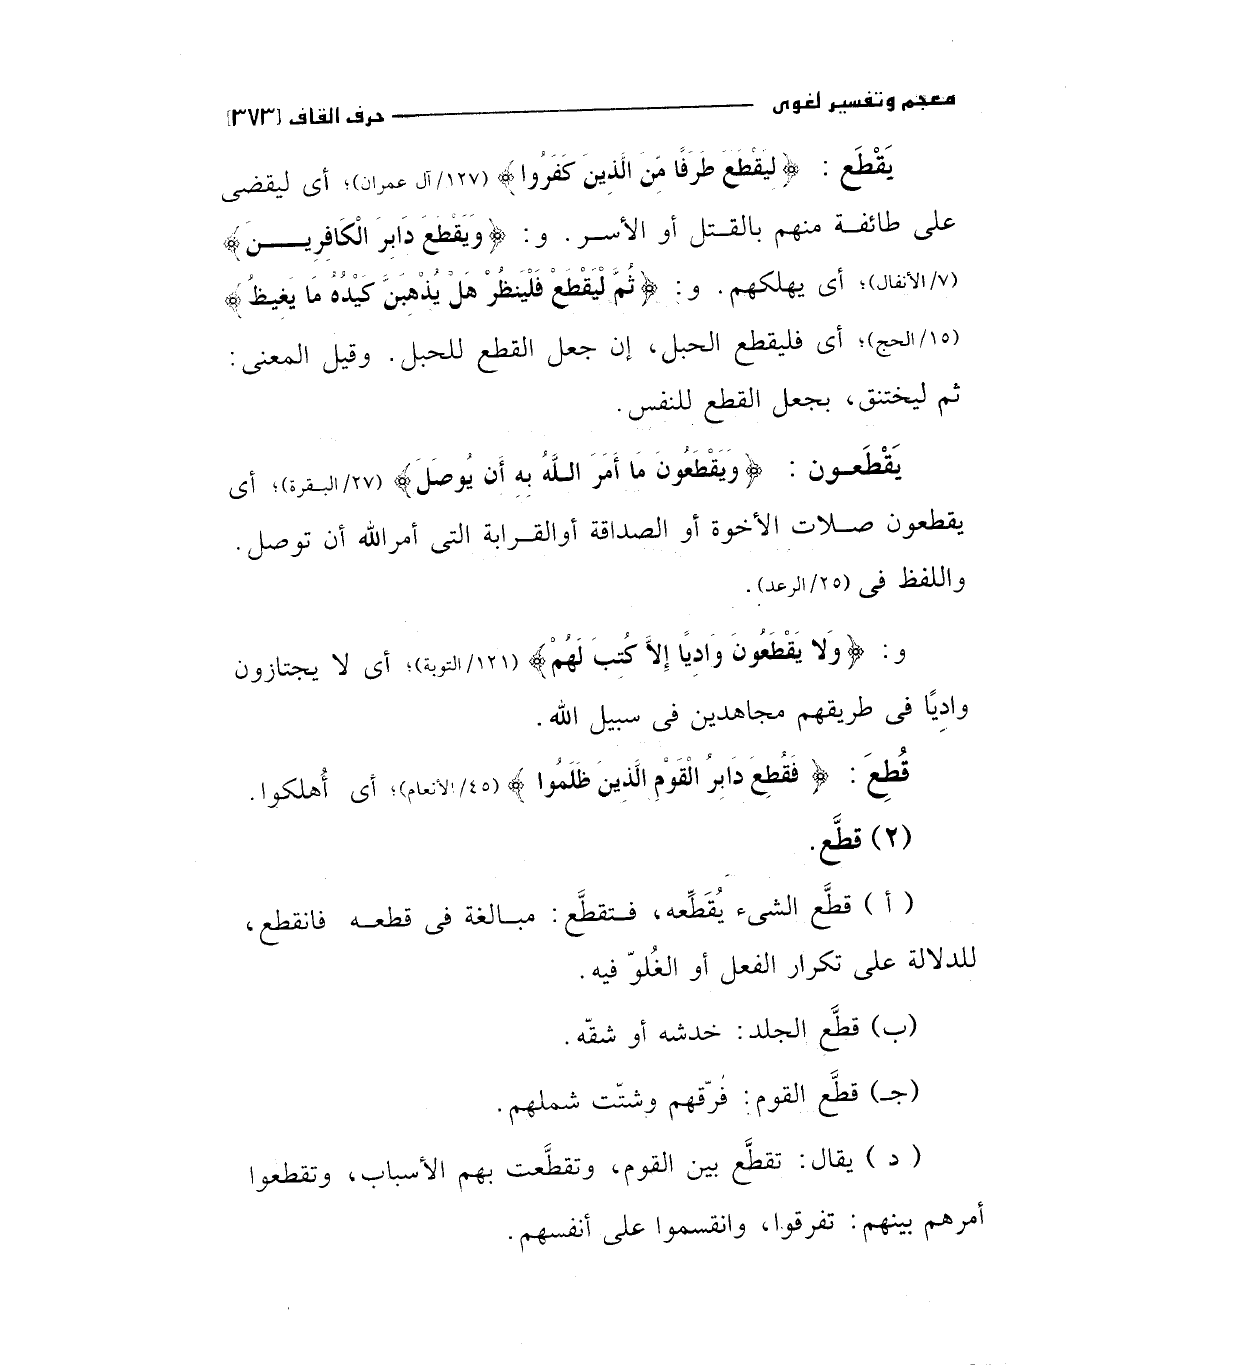 معجم وتفسير لغوى ـــــــ حرف القاف [٣٧٣]
يَقْطَع : ﴿لِيَقْطَعَ طَرَفًا مِّنَ الَّذِينَ كَفَرُوا﴾ (١٢٧/آل عمران)؛ أى ليقضى
على طائفـة منهم بالقـتل أو الأسـر. و: ﴿وَيَقْطَعَ دَابِرَ الْكَافِرِيـــنَ﴾
(٧/الأنفال)؛ أى يهلكهم. و: ﴿ثُمَّ لْيَقْطَعْ فَلْيَنظُرْ هَلْ يُذْهِبَنَّ كَيْدُهُ مَا يَغِيظُ﴾
(١٥/الحج)؛ أى فليقطع الحبل، إن جعل القطع للحبل. وقيل المعنى:
ثم ليختنق، بجعل القطع للنفس.
يَقْطَعـون : ﴿وَيَقْطَعُونَ مَا أَمَرَ اللَّهُ بِهِ أَن يُوصَلَ﴾ (٢٧/البقرة)؛ أى
يقطعون صـلات الأخوة أو الصداقة أوالقـرابة التى أمرالله أن توصل.
واللفظ فى (٢٥/الرعد).
و: ﴿وَلا يَقْطَعُونَ وَادِيًا إِلاَّ كُتِبَ لَهُمْ﴾ (١٢١/التوبة)؛ أى لا يجتازون
واديًا فى طريقهم مجاهدين فى سبيل الله.
قُطِعَ : ﴿ فَقُطِعَ دَابِرُ الْقَوْمِ الَّذِينَ ظَلَمُوا ﴾ (٤٥/الأنعام)؛ أى أُهلكوا.
(٢) قطَّع.
( أ ) قطَّع الشىء يُقَطِّعه، فـتقطَّع: مبـالغة فى قطعـه فانقطع،
للدلالة على تكرار الفعل أو الغُلوّ فيه.
(ب) قطَّع الجلد: خدشه أو شقّه.
(جـ) قطَّع القوم: فرّقهم وشتّت شملهم.
( د ) يقال: تقطَّع بين القوم، وتقطَّعت بهم الأسباب، وتقطعوا
أمرهم بينهم: تفرقوا، وانقسموا على أنفسهم.